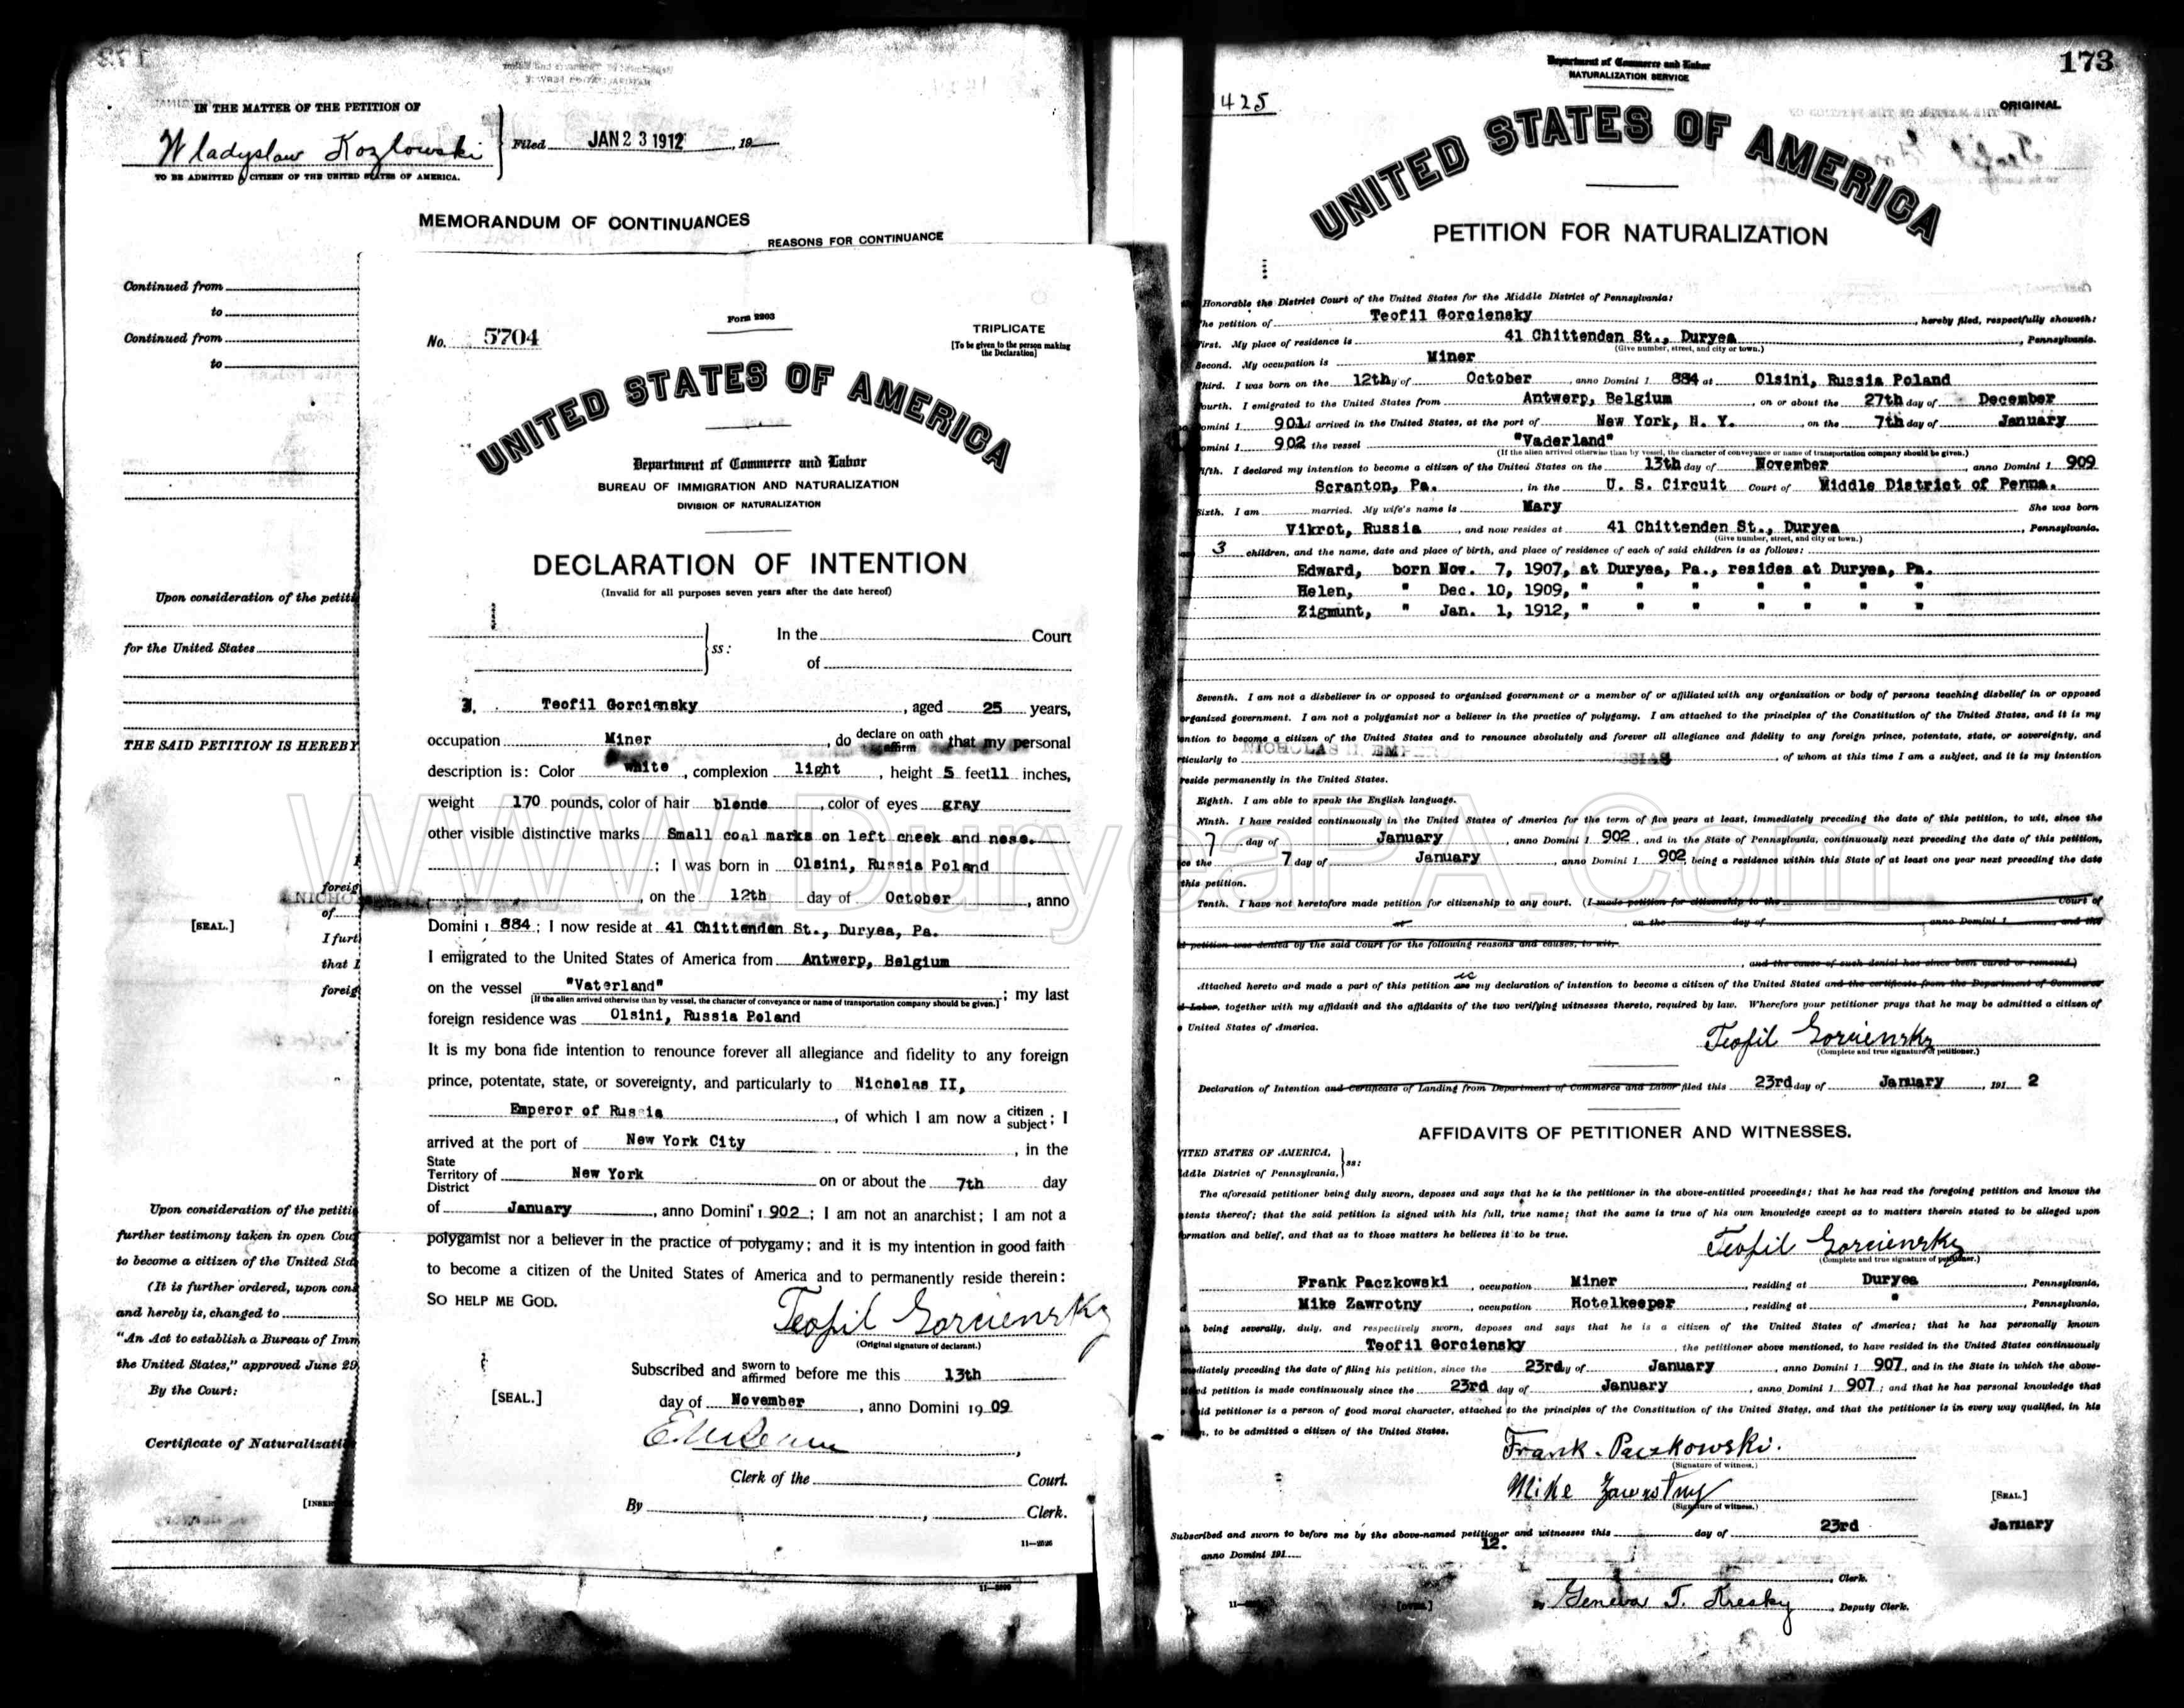 IN THE MATTER OF THE PETITION OF
Wladyslaw Kozlowski
Filed JAN 23 1912, 19
TO BE ADMITTED A CITIZEN OF THE UNITED STATES OF AMERICA.
MEMORANDUM OF CONTINUANCES
REASONS FOR CONTINUANCE
Continued from
to
Continued from
to
Upon consideration of the petiti
for the United States
THE SAID PETITION IS HEREBY
foreig
NICHO
of
[SEAL.]
I furt
that I
foreig
Upon consideration of the petiti
further testimony taken in open Cou
to become a citizen of the United Sta
(It is further ordered, upon cons
and hereby is, changed to
"An Act to establish a Bureau of Imm
the United States," approved June 29
By the Court:
Certificate of Naturalizati
[INSER
Form 2203
No. 5704
TRIPLICATE
[To be given to the person making the Declaration]
UNITED STATES OF AMERICA
Department of Commerce and Labor
BUREAU OF IMMIGRATION AND NATURALIZATION
DIVISION OF NATURALIZATION
DECLARATION OF INTENTION
(Invalid for all purposes seven years after the date hereof)
In the Court
ss:
of
I, Teofil Gorciensky, aged 25 years,
occupation Miner, do declare on oath affirm that my personal
description is: Color white, complexion light, height 5 feet 11 inches,
weight 170 pounds, color of hair blonde, color of eyes gray
other visible distinctive marks Small coal marks on left cheek and nose.
; I was born in Olsini, Russia Poland
, on the 12th day of October, anno
Domini 1 884; I now reside at 41 Chittenden St., Duryea, Pa.
I emigrated to the United States of America from Antwerp, Belgium
on the vessel "Vaterland"; my last
[If the alien arrived otherwise than by vessel, the character of conveyance or name of transportation company should be given.]
foreign residence was Olsini, Russia Poland
It is my bona fide intention to renounce forever all allegiance and fidelity to any foreign
prince, potentate, state, or sovereignty, and particularly to Nicholas II,
Emperor of Russia, of which I am now a citizen subject; I
arrived at the port of New York City, in the
State Territory District of New York on or about the 7th day
of January, anno Domini 1 902; I am not an anarchist; I am not a
polygamist nor a believer in the practice of polygamy; and it is my intention in good faith
to become a citizen of the United States of America and to permanently reside therein:
SO HELP ME GOD.
Teofil Gorciensky
(Original signature of declarant.)
Subscribed and sworn to affirmed before me this 13th
[SEAL.]
day of November, anno Domini 19 09
Clerk of the Court.
By , Clerk.
173
Department of Commerce and Labor
NATURALIZATION SERVICE
425
ORIGINAL
UNITED STATES OF AMERICA
PETITION FOR NATURALIZATION
Honorable the District Court of the United States for the Middle District of Pennsylvania:
The petition of Teofil Gorciensky, hereby filed, respectfully showeth:
First. My place of residence is 41 Chittenden St., Duryea, Pennsylvania.
(Give number, street, and city or town.)
Second. My occupation is Miner
Third. I was born on the 12th y of October, anno Domini 1 884 at Olsini, Russia Poland
ourth. I emigrated to the United States from Antwerp, Belgium, on or about the 27th day of December
omini 1 901 d arrived in the United States, at the port of New York, N. Y., on the 7th day of January
omini 1 902 the vessel "Vaderland"
(If the alien arrived otherwise than by vessel, the character of conveyance or name of transportation company should be given.)
Fifth. I declared my intention to become a citizen of the United States on the 13th day of November, anno Domini 1 909
Scranton, Pa., in the U. S. Circuit Court of Middle District of Penna.
Sixth. I am married. My wife's name is Mary She was born
Vikrot, Russia, and now resides at 41 Chittenden St., Duryea, Pennsylvania.
(Give number, street, and city or town.)
3 children, and the name, date and place of birth, and place of residence of each of said children is as follows:
Edward, born Nov. 7, 1907, at Duryea, Pa., resides at Duryea, Pa.
Helen, " Dec. 10, 1909, " " " " " " "
Zigmunt, " Jan. 1, 1912, " " " " " " "
Seventh. I am not a disbeliever in or opposed to organized government or a member of or affiliated with any organization or body of persons teaching disbelief in or opposed
organized government. I am not a polygamist nor a believer in the practice of polygamy. I am attached to the principles of the Constitution of the United States, and it is my
ntion to become a citizen of the United States and to renounce absolutely and forever all allegiance and fidelity to any foreign prince, potentate, state, or sovereignty, and
rticularly to NICHOLAS II. EMPER SSIAS, of whom at this time I am a subject, and it is my intention
reside permanently in the United States.
Eighth. I am able to speak the English language.
Ninth. I have resided continuously in the United States of America for the term of five years at least, immediately preceding the date of this petition, to wit, since the
7 day of January, anno Domini 1 902, and in the State of Pennsylvania, continuously next preceding the date of this petition,
ce the 7 day of January, anno Domini 1 902, being a residence within this State of at least one year next preceding the date
this petition.
Tenth. I have not heretofore made petition for citizenship to any court. (I made petition for citizenship to the Court of
at , on the day of anno Domini 1 and the
d petition was denied by the said Court for the following reasons and causes, to wit,
, and the cause of such denial has since been cured or removed.)
Attached hereto and made a part of this petition are is my declaration of intention to become a citizen of the United States and the certificate from the Department of Commerce
d Labor, together with my affidavit and the affidavits of the two verifying witnesses thereto, required by law. Wherefore your petitioner prays that he may be admitted a citizen of
United States of America.
Teofil Gorciensky
(Complete and true signature of petitioner.)
Declaration of Intention and Certificate of Landing from Department of Commerce and Labor filed this 23rd day of January, 191 2
AFFIDAVITS OF PETITIONER AND WITNESSES.
ITED STATES OF AMERICA,
ss:
ddle District of Pennsylvania,
The aforesaid petitioner being duly sworn, deposes and says that he is the petitioner in the above-entitled proceedings; that he has read the foregoing petition and knows the
tents thereof; that the said petition is signed with his full, true name; that the same is true of his own knowledge except as to matters therein stated to be alleged upon
ormation and belief, and that as to those matters he believes it to be true.
Teofil Gorciensky
(Complete and true signature of petitioner.)
Frank Paczkowski, occupation Miner, residing at Duryea, Pennsylvania,
Mike Zawrotny, occupation Hotelkeeper, residing at ", Pennsylvania,
h being severally, duly, and respectively sworn, deposes and says that he is a citizen of the United States of America; that he has personally known
Teofil Gorciensky, the petitioner above mentioned, to have resided in the United States continuously
ediately preceding the date of filing his petition, since the 23rd y of January, anno Domini 1 907, and in the State in which the above-
ed petition is made continuously since the 23rd day of January, anno Domini 1 907; and that he has personal knowledge that
id petitioner is a person of good moral character, attached to the principles of the Constitution of the United States, and that the petitioner is in every way qualified, in his
n, to be admitted a citizen of the United States.
Frank Paczkowski.
(Signature of witness.)
Mike Zawrotny
(Signature of witness.)
[SEAL.]
Subscribed and sworn to before me by the above-named petitioner and witnesses this day of 23rd January
anno Domini 191 12.
, Clerk.
By Geneva T. Kresky, Deputy Clerk.
WWW.DuryeaPA.Com